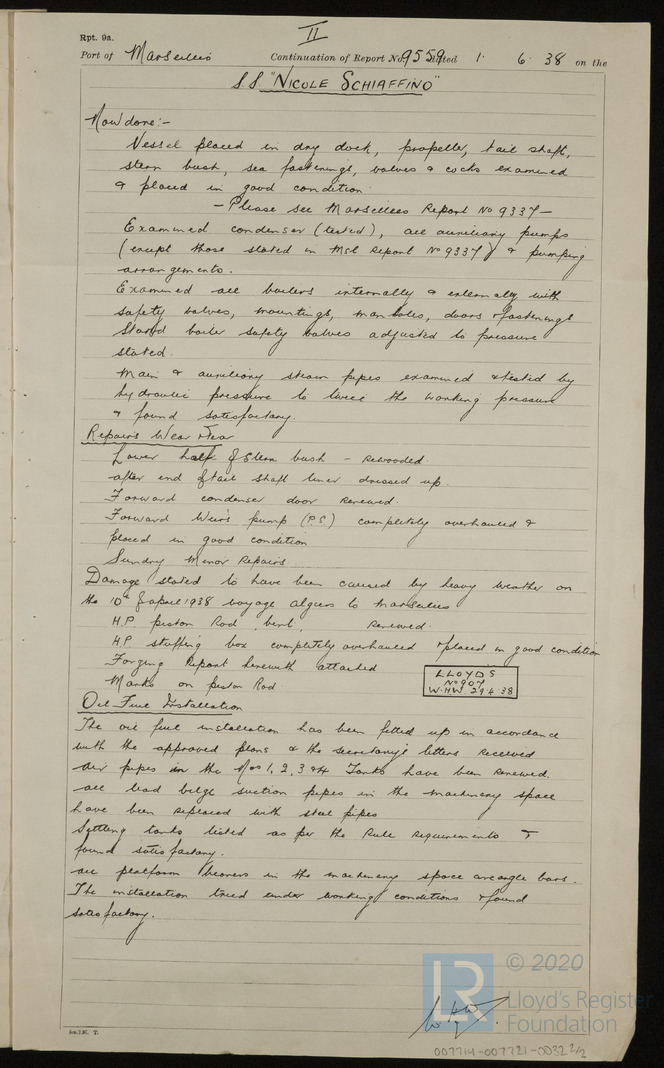 Rpt. 9a.
II
Port of Marseilles Continuation of Report No. 9559 dated 1. 6. 38 on the
S.S "NICOLE SCHIAFFINO"
Now done:-
Vessel placed in dry dock, propeller, tail shaft,
stern bush, sea fastenings, valves & cocks examined
& placed in good condition.
- Please see Marseilles Report No 9337 -
Examined condenser (tested), all auxiliary pumps
(except those stated in Msl Report No 9337) & pumping
arrangements.
Examined all boilers internally & externally with
safety valves, mountings, manholes, doors & fastenings
Starbd boiler safety valves adjusted to pressure
stated.
Main & auxiliary steam pipes examined & tested by
hydraulic pressure to twice the working pressure
& found satisfactory.
Repairs Wear & Tear
Lower half of Stern bush - rewooded.
after end of tail shaft liner dressed up.
Forward condenser door renewed.
Forward Weirs pump (P.S.) completely overhauled &
placed in good condition
Sundry Minor Repairs
Damage stated to have been caused by heavy weather on
the 10th of april 1938 voyage algiers to Marseilles
H.P. piston Rod bent, renewed.
H.P. stuffing box completely overhauled & placed in good condition
Forging Report herewith attached
Marks on piston Rod
LLOYD'S
No 907
W.HW 29.4.38
Oil Fuel Installation
The oil fuel installation has been fitted up in accordance
with the approved plans & the secretary's letters received
air pipes in the Nos 1, 2, 3 & 4 Tanks have been renewed.
all lead bilge suction pipes in the machinery space
have been replaced with steel pipes
Settling tanks tested as per the Rule requirements &
found satisfactory.
all platform bearers in the machinery space are angle bars.
The installation tried under working conditions & found
satisfactory.
W.HW.
© 2020
LR
Lloyd's Register
Foundation
007714-007721-0032 2/2